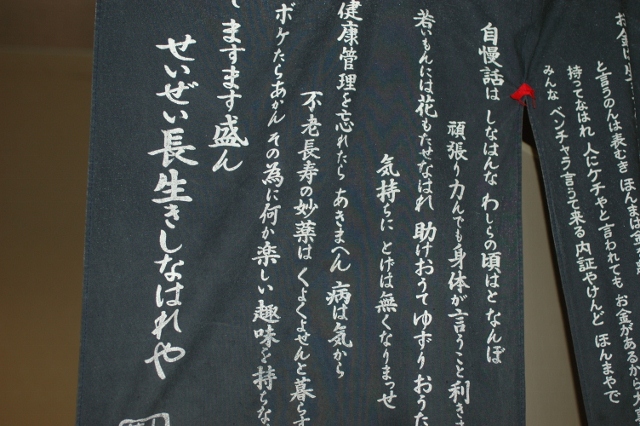 と言うのんは表むき ほんまは
持ってなはれ 人にケチやと言われても お金があるから
みんな ベンチャラ言って来る 内証やけんど ほんまやで
自慢話は しなはんな わしらの頃はと なんぼ
頑張り力んでも 身体が言うこと利き
若いもんには花もたせなはれ 助けおうて ゆずりおうた
気持らに とげは無くなりまっせ
健康管理を忘れたら あきまへん 病は気から
不老長寿の妙薬は くよくよせんと暮らす
ボケたらあかん その為に何か楽しい 趣味を持ちな
ますます盛ん
せいぜい長生きしなはれや